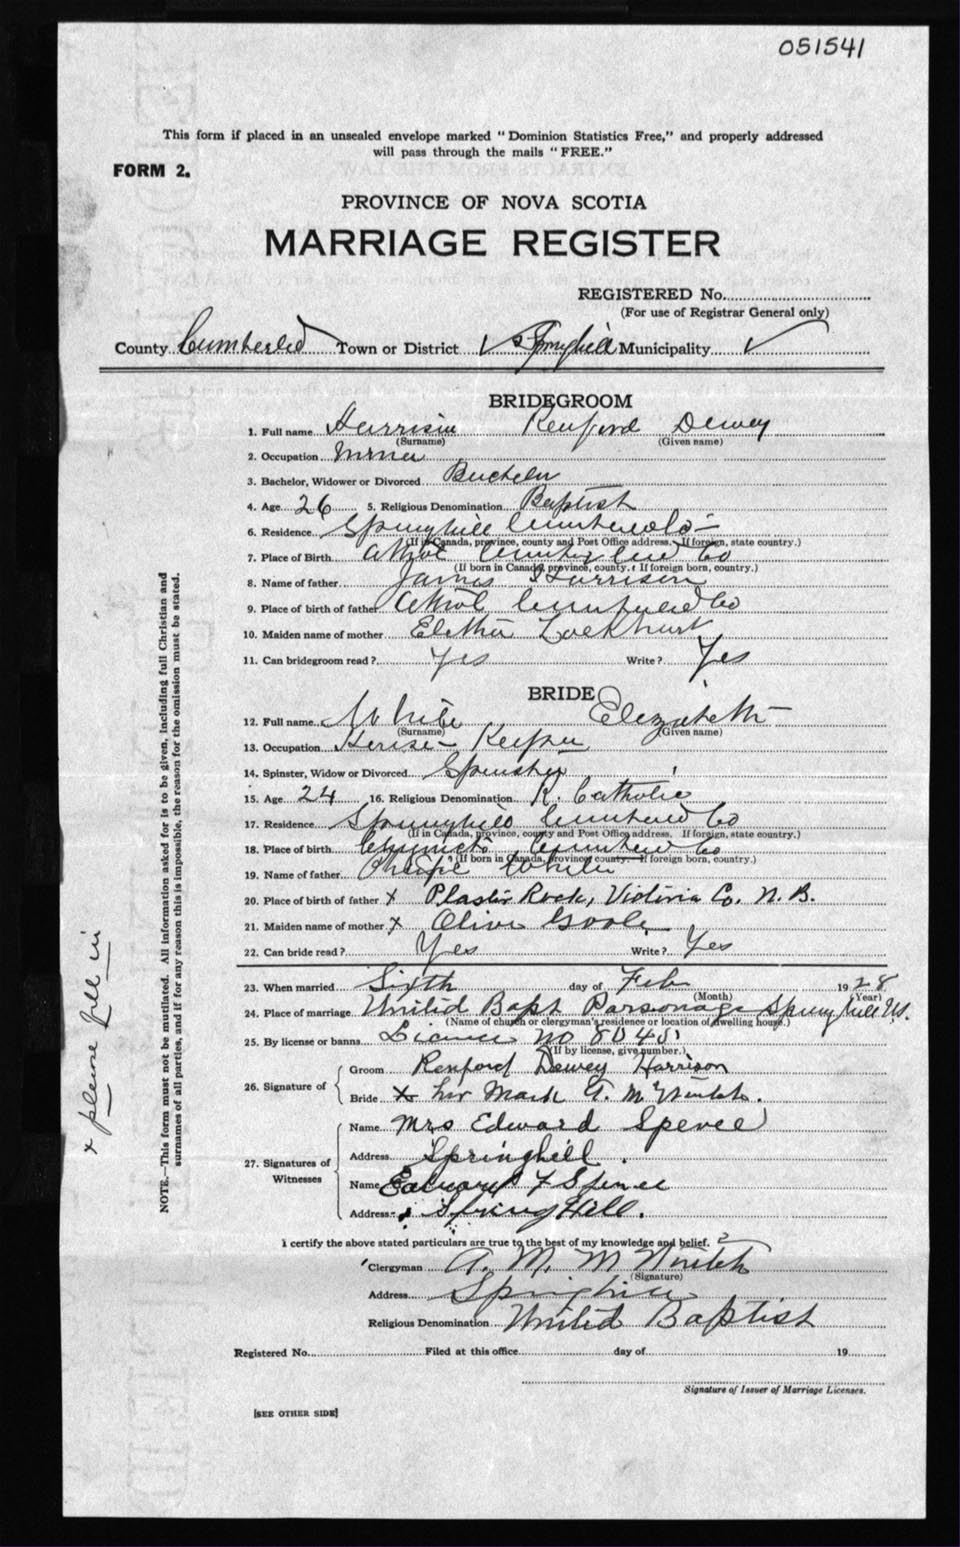 051541
This form if placed in an unsealed envelope marked "Dominion Statistics Free," and properly addressed
will pass through the mails "FREE."
FORM 2.
PROVINCE OF NOVA SCOTIA
MARRIAGE REGISTER
REGISTERED No.
(For use of Registrar General only)
County Town or District Springhill Municipality
BRIDEGROOM
1. Full name Harrison Renford Dewey
(Surname) (Given name)
2. Occupation Miner
3. Bachelor, Widower or Divorced Bachelor
4. Age 26 5. Religious Denomination Baptist
6. Residence Springhill Co
(If in Canada, province, county and Post Office address. If foreign, state country.)
7. Place of Birth Athol Co
(If born in Canada, province, county. If foreign born, country.)
8. Name of father James Harrison
9. Place of birth of father Athol Co
10. Maiden name of mother Lockhart
11. Can bridegroom read? Yes Write? Yes
BRIDE
12. Full name White Elizabeth
(Surname) (Given name)
13. Occupation House Keeper
14. Spinster, Widow or Divorced Spinster
15. Age 24 16. Religious Denomination R. Catholic
17. Residence Springhill Co
(If in Canada, province, county and Post Office address. If foreign, state country.)
18. Place of birth Co
(If born in Canada, province, county. If foreign born, country.)
19. Name of father White
20. Place of birth of father x Plaster Rock, Victoria Co. N. B.
21. Maiden name of mother x Olive
22. Can bride read? Yes Write? Yes
23. When married Sixth day of Feb 1928
(Month) (Year)
24. Place of marriage United Bapt Parsonage Springhill N.S.
(Name of church or clergyman's residence or location of dwelling house.)
25. By license or banns License no 80451
(If by license, give number.)
26. Signature of
Groom Renford Dewey Harrison
Bride x her Mark A. M.
27. Signatures of Witnesses
Name Mrs Edward Spence
Address Springhill.
Name Edward F Spence
Address Spring Hill.
I certify the above stated particulars are true to the best of my knowledge and belief.
Clergyman A. M.
(Signature)
Address Springhill
Religious Denomination United Baptist
Registered No. Filed at this office day of 19
Signature of Issuer of Marriage Licenses.
[SEE OTHER SIDE]
NOTE.—This form must not be mutilated. All information asked for is to be given, including full Christian and
surnames of all parties, and if for any reason this is impossible, the reason for the omission must be stated.
x please fill in